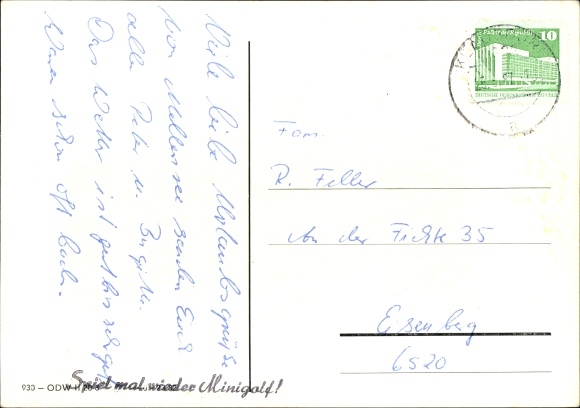 Viele liebe Urlaubsgrüße
von Mellensee senden Euch
alle Peter u. Birgitt.
Das Wetter ist gut bis sehr gut
Waren schon oft baden.
Palast der Republik
10
DEUTSCHE DEMOKRATISCHE REPUBLIK
Fam.
R. Feller
An der Fichte 35
Eisenberg
6520
930 – ODW II
Spiel mal wieder Minigolf!